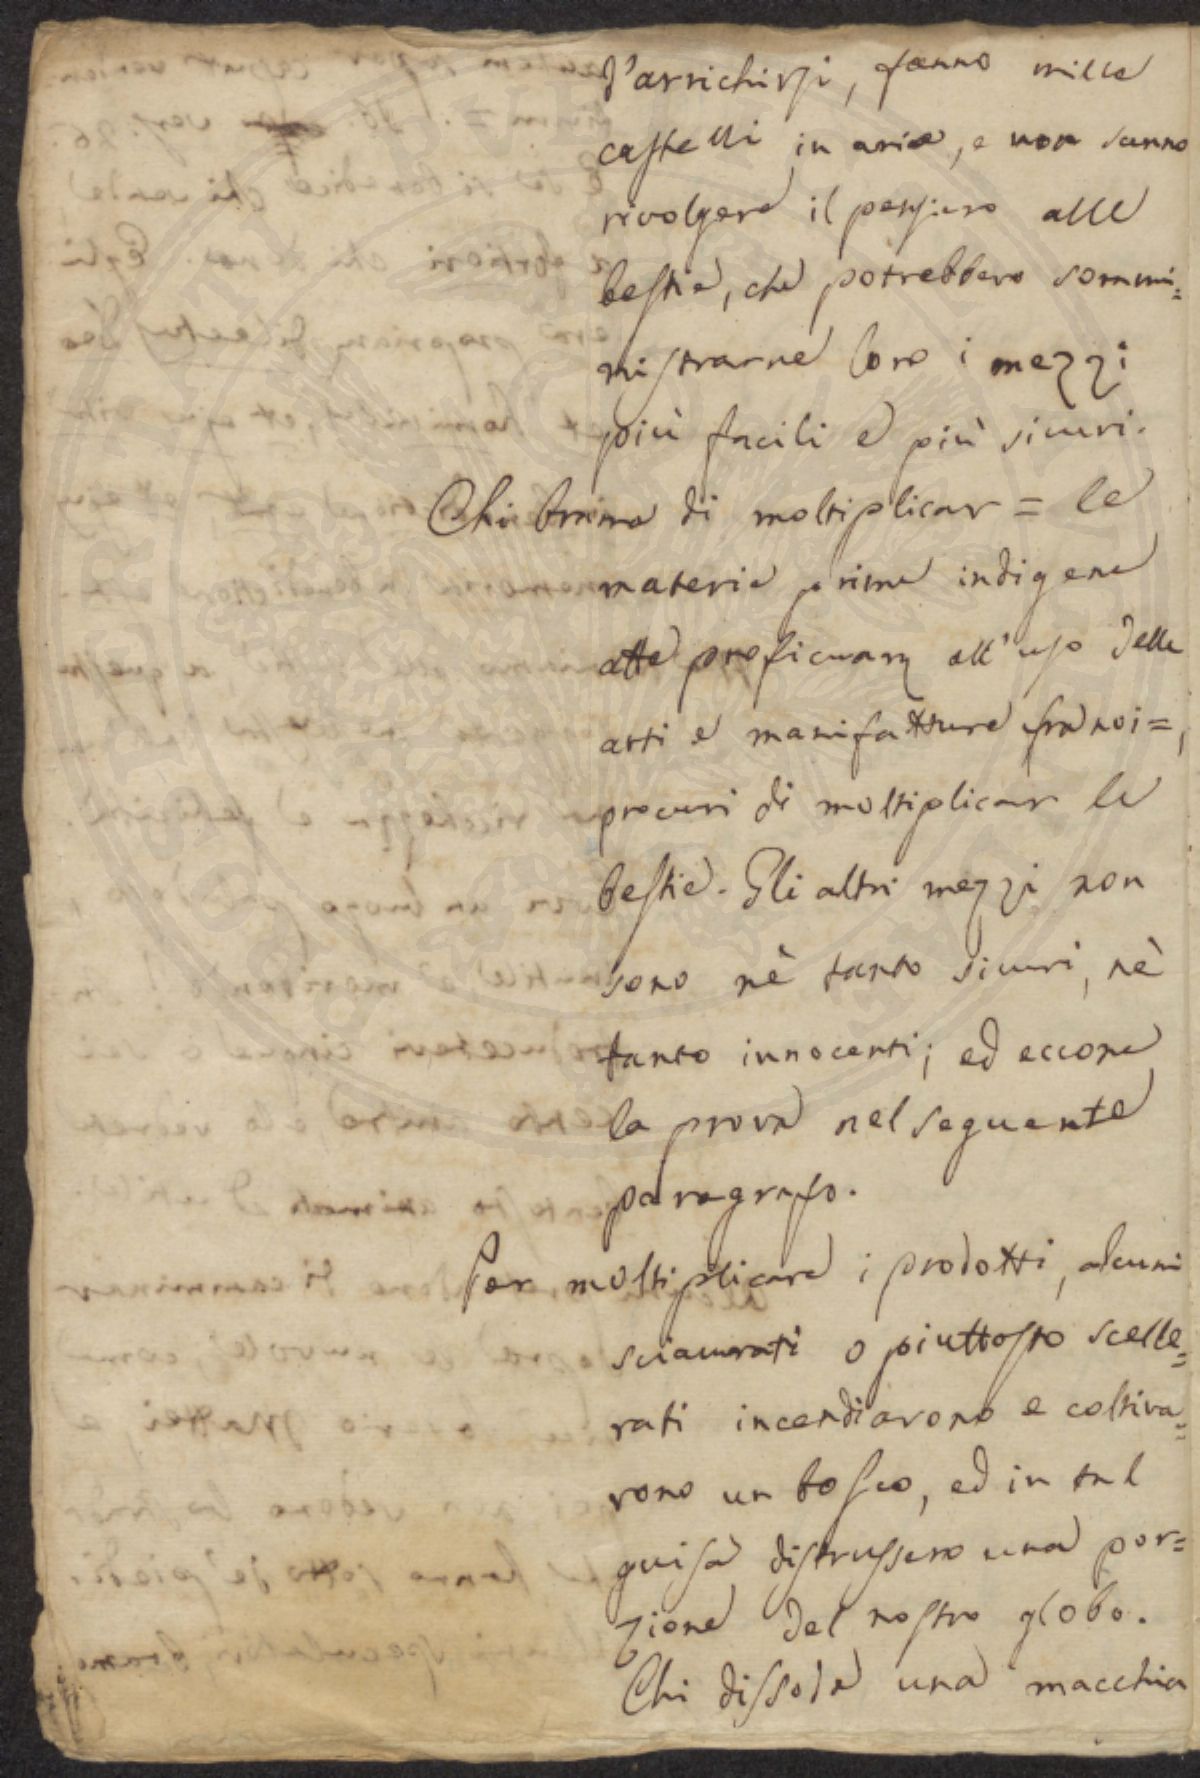 d'arrichirsi, fanno mille
castelli in aria, e non sanno
rivolgere il pensiero alle
bestie, che potrebbero sommi=
nistrarne loro i mezzi
più facili e più sicuri.
Chi brama di moltiplicar = le
materie prime indigene
atte all'uso delle
arti e manifatture fra noi=,
procuri di moltiplicar le
bestie. Gli altri mezzi non
sono nè tanto sicuri, nè
tanto innocenti; ed eccone
la prova nel seguente
paragrafo.
Per moltiplicare i prodotti, alcuni
sciaurati o piuttosto scelle=
rati incendiarono e coltiva=
rono un bosco, ed in tal
guisa distrussero una por=
zione del nostro globo.
Chi dissoda una macchia